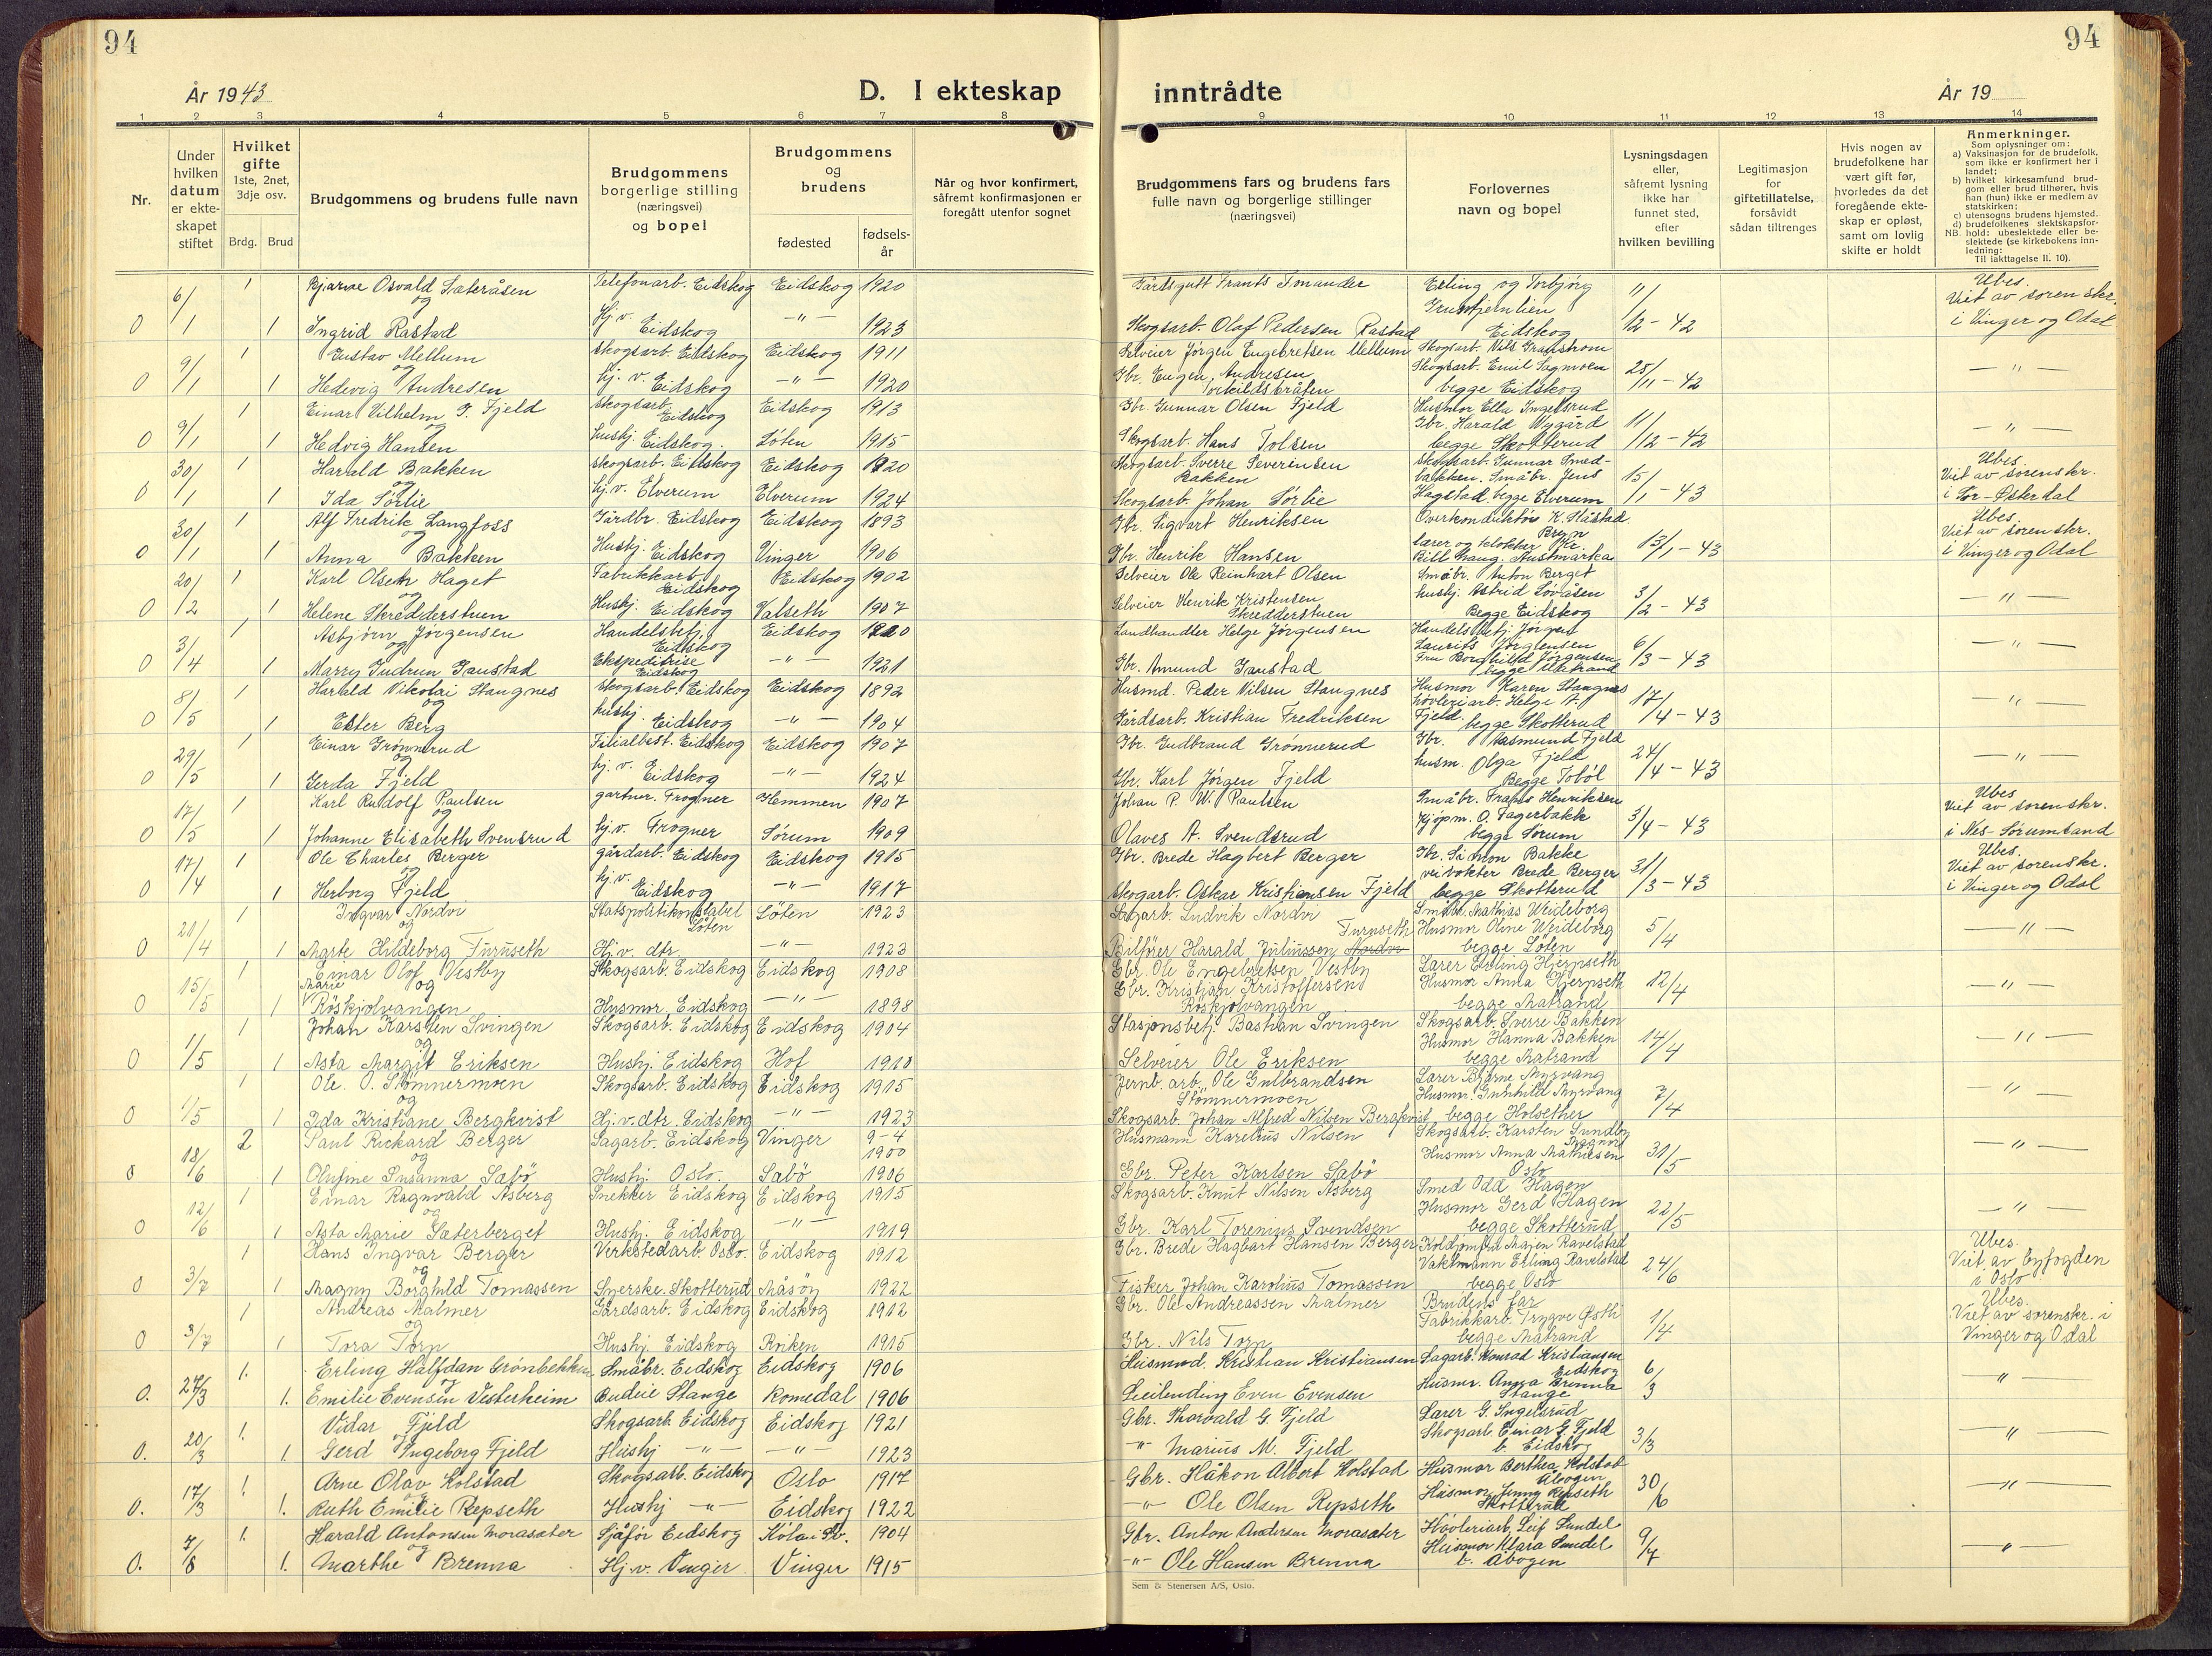 94
94
År 1943
D. I ekteskap inntrådte
År 19
1 2 3 4 5 6 7 8 9 10 11 12 13 14
Nr.
Under hvilken datum er ekteskapet stiftet
Hvilket gifte 1ste, 2net, 3dje osv.
Brdg. Brud
Brudgommens og brudens fulle navn
Brudgommens borgerlige stilling (næringsvei) og bopel
Brudgommens og brudens
fødested
fødsels-år
Når og hvor konfirmert, såfremt konfirmasjonen er foregått utenfor sognet
Brudgommens fars og brudens fars fulle navn og borgerlige stillinger (næringsvei)
Forlovernes navn og bopel
Lysningsdagen eller, såfremt lysning ikke har funnet sted, efter hvilken bevilling
Legitimasjon for giftetillatelse, forsåvidt sådan tiltrenges
Hvis nogen av brudefolkene har vært gift før, hvorledes da det foregående ekteskap er opløst, samt om lovlig skifte er holdt
Anmerkninger.
Som oplysninger om:
a) Vaksinasjon for de brudefolk, som ikke er konfirmert her i landet;
b) hvilket kirkesamfund brudgom eller brud tilhører, hvis han (hun) ikke er medlem av statskirken;
c) utensogns brudens hjemsted.
d) brudefolkenes slektskapsforhold: ubeslektede eller beslektede (se kirkebokens innledning:
NB.
Til iakttagelse II. 10).
6/1 1 Bjarne Osvald Sæteråsen Telefonarb. Eidskog Eidskog 1920 Gårdsgutt Frants Smander Erling og Torbjørg 11/12-42 Ubes.
og Grunntjernlien Viet av sorenskr.
0 1 Ingrid Rastad Hj.v. Eidskog -"- 1923 Skogsarb. Olaf Pedersen Rastad Eidskog i Vinger og Odal
9/1 1 Gustav Mellum Skogsarb. Eidskog Eidskog 1911 Selveier Jørgen Engebretsen Mellum Skogsarb. Nils Granstrøm 25/11-42 -"-
og Skogsarb. Emil Sagmoen
0 1 Hedevig Andresen hj.v. Eidskog -"- 1920 Gbr. Eugen Andresen Torkildsbråten begge Eidskog
9/1 1 Einar Vilhelm G. Fjeld Skogsarb. Eidskog Eidskog 1913 Gbr. Gunnar Olsen Fjeld Husmor Ella Ingelsrud 11/12-42 -"-
og Gbr. Harald Nygård
0 1 Hedvig Hansen hushj. Eidskog. Løten 1915 Skogsarb. Hans Tolsen begge Skotterud
30/1 1 Harald Bakken Skogsarb. Eidskog Eidskog 1920 Skogsarb. Sverre Severinsen Bakken Skogsarb. Gunnar Smed- 15/1-43 Ubes.
og bakken. Småbr. Jens Viet av sorenskr.
0 1 Ida Sørlie hj.v. Elverum Elverum 1924 Skogsarb. Johan Sørlie Hagstad, begge Elverum i Sør-Østerdal
30/1 1 Alf Fredrik Langfoss Gårdbr. Eidskog Eidskog 1893 Gbr. Sigvart Henriksen Overkonduktør K. Håstad 13/1-43 Ubes.
og Bryn Viet av sorenskr.
0 1 Anna Bakken Hushj. Eidskog Vinger 1906 Gbr. Henrik Hansen Lærer og klokker Haug, Austmarka i Vinger og Odal
20/2 1 Karl Olsen Haget Fabrikkarb. Eidskog Eidskog 1902 Selveier Ole Reinhart Olsen Småbr. Anton Berget 3/2-43 -"-
og hushj. Astrid Løvåsen
0 1 Helene Skredderstuen Hushj. Eidskog Valseth 1907 Selveier Henrik Kristensen Skredderstuen Begge Eidskog
3/4 1 Asbjørn Jørgensen Handelsbetj. Eidskog Eidskog 1920 Landhandler Helge Jørgensen Handelsbetj. Jørgen 6/3-43 -"-
og Laurits Jørgensen
0 1 Marry Gudrun Gaustad Ekspeditrise Eidskog -"- 1921 Gbr. Amund Gaustad Fru Borghild Jørgensen begge Matrand
8/5 1 Harald Nikolai Stangnes Skogsarb. Eidskog Eidskog 1892 Husmd. Peder Nilsen Stangnes Husmor Karen Stangnes 17/4-43 -"-
og høvleriarb. Helge A.
0 1 Ester Berg hushj. Eidskog -"- 1904 Gårdsarb. Kristian Fredriksen Fjeld. begge Skotterud
29/5 1 Einar Grønnerud Filialbest. Eidskog Eidskog 1907 Gbr. Gudbrand Grønnerud Gbr. Aasmund Fjeld 24/4-43 -"-
og husm. Olga Fjeld
0 1 Gerda Fjeld hj.v. Eidskog -"- 1924 Gbr. Karl Jørgen Fjeld Begge Tobøl
17/5 1 Karl Rudolf Paulsen gartner. Frogner Hemmen 1907 Johan P. W. Paulsen Småbr. Frans Henriksen 3/4-43 Ubes.
og Kjøpm. O. Fagerbakk Viet av sorenskr.
0 1 Johanne Elisabeth Svensrud hj.v. Frogner Sørum 1909 Olaves A. Svendsrud begge Sørum i Nes-Sørumsand
17/4 1 Ole Charles Berger gårdarb. Eidskog Eidskog 1915 Gbr. Brede Hagbert Berger Gbr. Simon Bakke 31/3-43 Ubes.
og veivokter Brede Berger Viet av sorenskr.
0 1 Herborg Fjeld hj.v. Eidskog -"- 1917 Skogarb. Oskar Kristiansen Fjeld begge Skotterud i Vinger og Odal
21/4 1 Ingvar Nordvi Statspolitikonstabel Løten Løten 1923 Sagarb. Ludvik Nordvi Småbr. Mathias Weideborg 5/4 -"-
og Furuseth Husmor Oline Weideborg
0 1 Marte Hildeborg Furuseth Hj.v. dtr. -"- 1923 Bilfører Harald Juliussen Nordvi begge Løten
15/5 1 Einar Olof Vestby Skogsarb. Eidskog Eidskog 1908 Gbr. Ole Engebretsen Vestby Lærer Erling Hjerpseth 12/4 -"-
Marie og Gbr. Kristian Kristoffersen Husmor Anna Hjerpseth
0 1 Røskjølvangen Husmor. Eidskog -"- 1898 Røskjølvangen begge Matrand
1/5 1 Johan Karsten Svingen Skogsarb. Eidskog Eidskog 1904 Stasjonsbetj. Bastian Svingen Skogsarb. Sverre Bakken 14/4 -"-
og Husmor Hanna Bakken
0 1 Asta Margit Eriksen Hushj. Eidskog Hof 1910 Selveier Ole Eriksen begge Matrand
1/5 1 Ole. O. Stømnermoen Skogsarb. Eidskog Eidskog 1915 Jernb. arb. Ole Gulbrandsen Lærer Bjarne Myrvang 7/4 -"-
og Stømnermoen Husmor Gunhild Myrvang
0 1 Ida Kristiane Bergkvist Hj.v. dtr. Eidskog -"- 1923 Skogsarb. Johan Alfred Nilsen Bergkvist begge Holsether
18/6 2 Paul Rickard Berger Sagarb. Eidskog Vinger 9-4 1900 Husmann Karelius Nilsen Skogsarb. Karsten Sundby 31/5 -"-
og Magnor Husmor Anna Mathisen
0 1 Olufine Susanna Sabö Hushj. Oslo. Sabö 1906 Gbr. Peter Karlsen Sabö Oslo
12/6 1 Einar Ragnvald Åsberg Snekker Eidskog Eidskog 1915 Skogsarb. Knut Nilsen Åsberg Smed Odd Hagen 22/5 -"-
og Husmor Gerd Hagen
0 1 Asta Marie Sæterberget Hushj. Eidskog -"- 1919 Gbr. Karl Torenius Svendsen begge Skotterud
3/7 1 Hans Ingvar Berger Verkstedarb Oslo. Eidskog 1912 Gbr. Brede Hagbart Hansen Berger Koldjomfru Majen Ravelstad 24/6 Ubes.
og Vaktmann Erling Ravelstad Viet av byfogden
0 1 Magny Borghild Tomassen Syerske. Skotterud Måsøy 1922 Fisker Johan Karolius Tomassen begge Oslo i Oslo
3/7 1 Andreas Malmer Gårdsarb. Eidskog Eidskog 1912 Gbr. Ole Andreassen Malmer Brudens far 1/4 Ubes.
og Fabrikkarb. Trygve Østli Viet av sorenskr. i
0 1 Tora Torp Hushj. Eidskog Röiken 1915 Gbr. Nils Torp begge Matrand Vinger og Odal
27/3 1. Erling Halfdan Grönbekken Småbr. Eidskog Eidskog 1906 Husmnd. Kristian Kristiansen Sagarb. Konrad Kristiansen Eidskog 6/3 -"-
og Husmr. Anna Brenna
0. 1. Emilie Evensen Vesterheim Budeie Stange Romedal 1906 Leilending Even Evensen Stange
20/3 1. Vidar Fjeld Skogsarb Eidskog Eidskog 1921 Gbr. Thorvald G. Fjeld Lærer G. Ingelsrud 3/3 -"-
og Skogsarb. Einar G. Fjeld
0. 1. Gerd Ingeborg Fjeld Hushj -"- -"- 1923 -"- Marius M. Fjeld b. Eidskog
17/3 1. Arne Olav Kolstad Skogsarb. Eidskog Oslo 1917 Gbr. Håkon Albert Kolstad Husmor Berthea Kolstad Åbogen 30/6 -"-
og Husmor Jenny Repseth
0. 1. Ruth Emilie Repseth Hushj -"- Eidskog 1922 -"- Ole Olsen Repseth Skotterud
7/8 1. Harald Antonsen Morasæter Sjåfør Eidskog Köla Sv. 1904 Gbr. Anton Andersen Morasæter Høvleriarb. Leif Sundel 9/7 -"-
og Husmor Klara Sundel
0. 1. Marthe Brenna Hj.v. Vinger Vinger 1915 -"- Ole Hansen Brenna b. Åbogen
Sem & Stenersen A/S, Oslo.